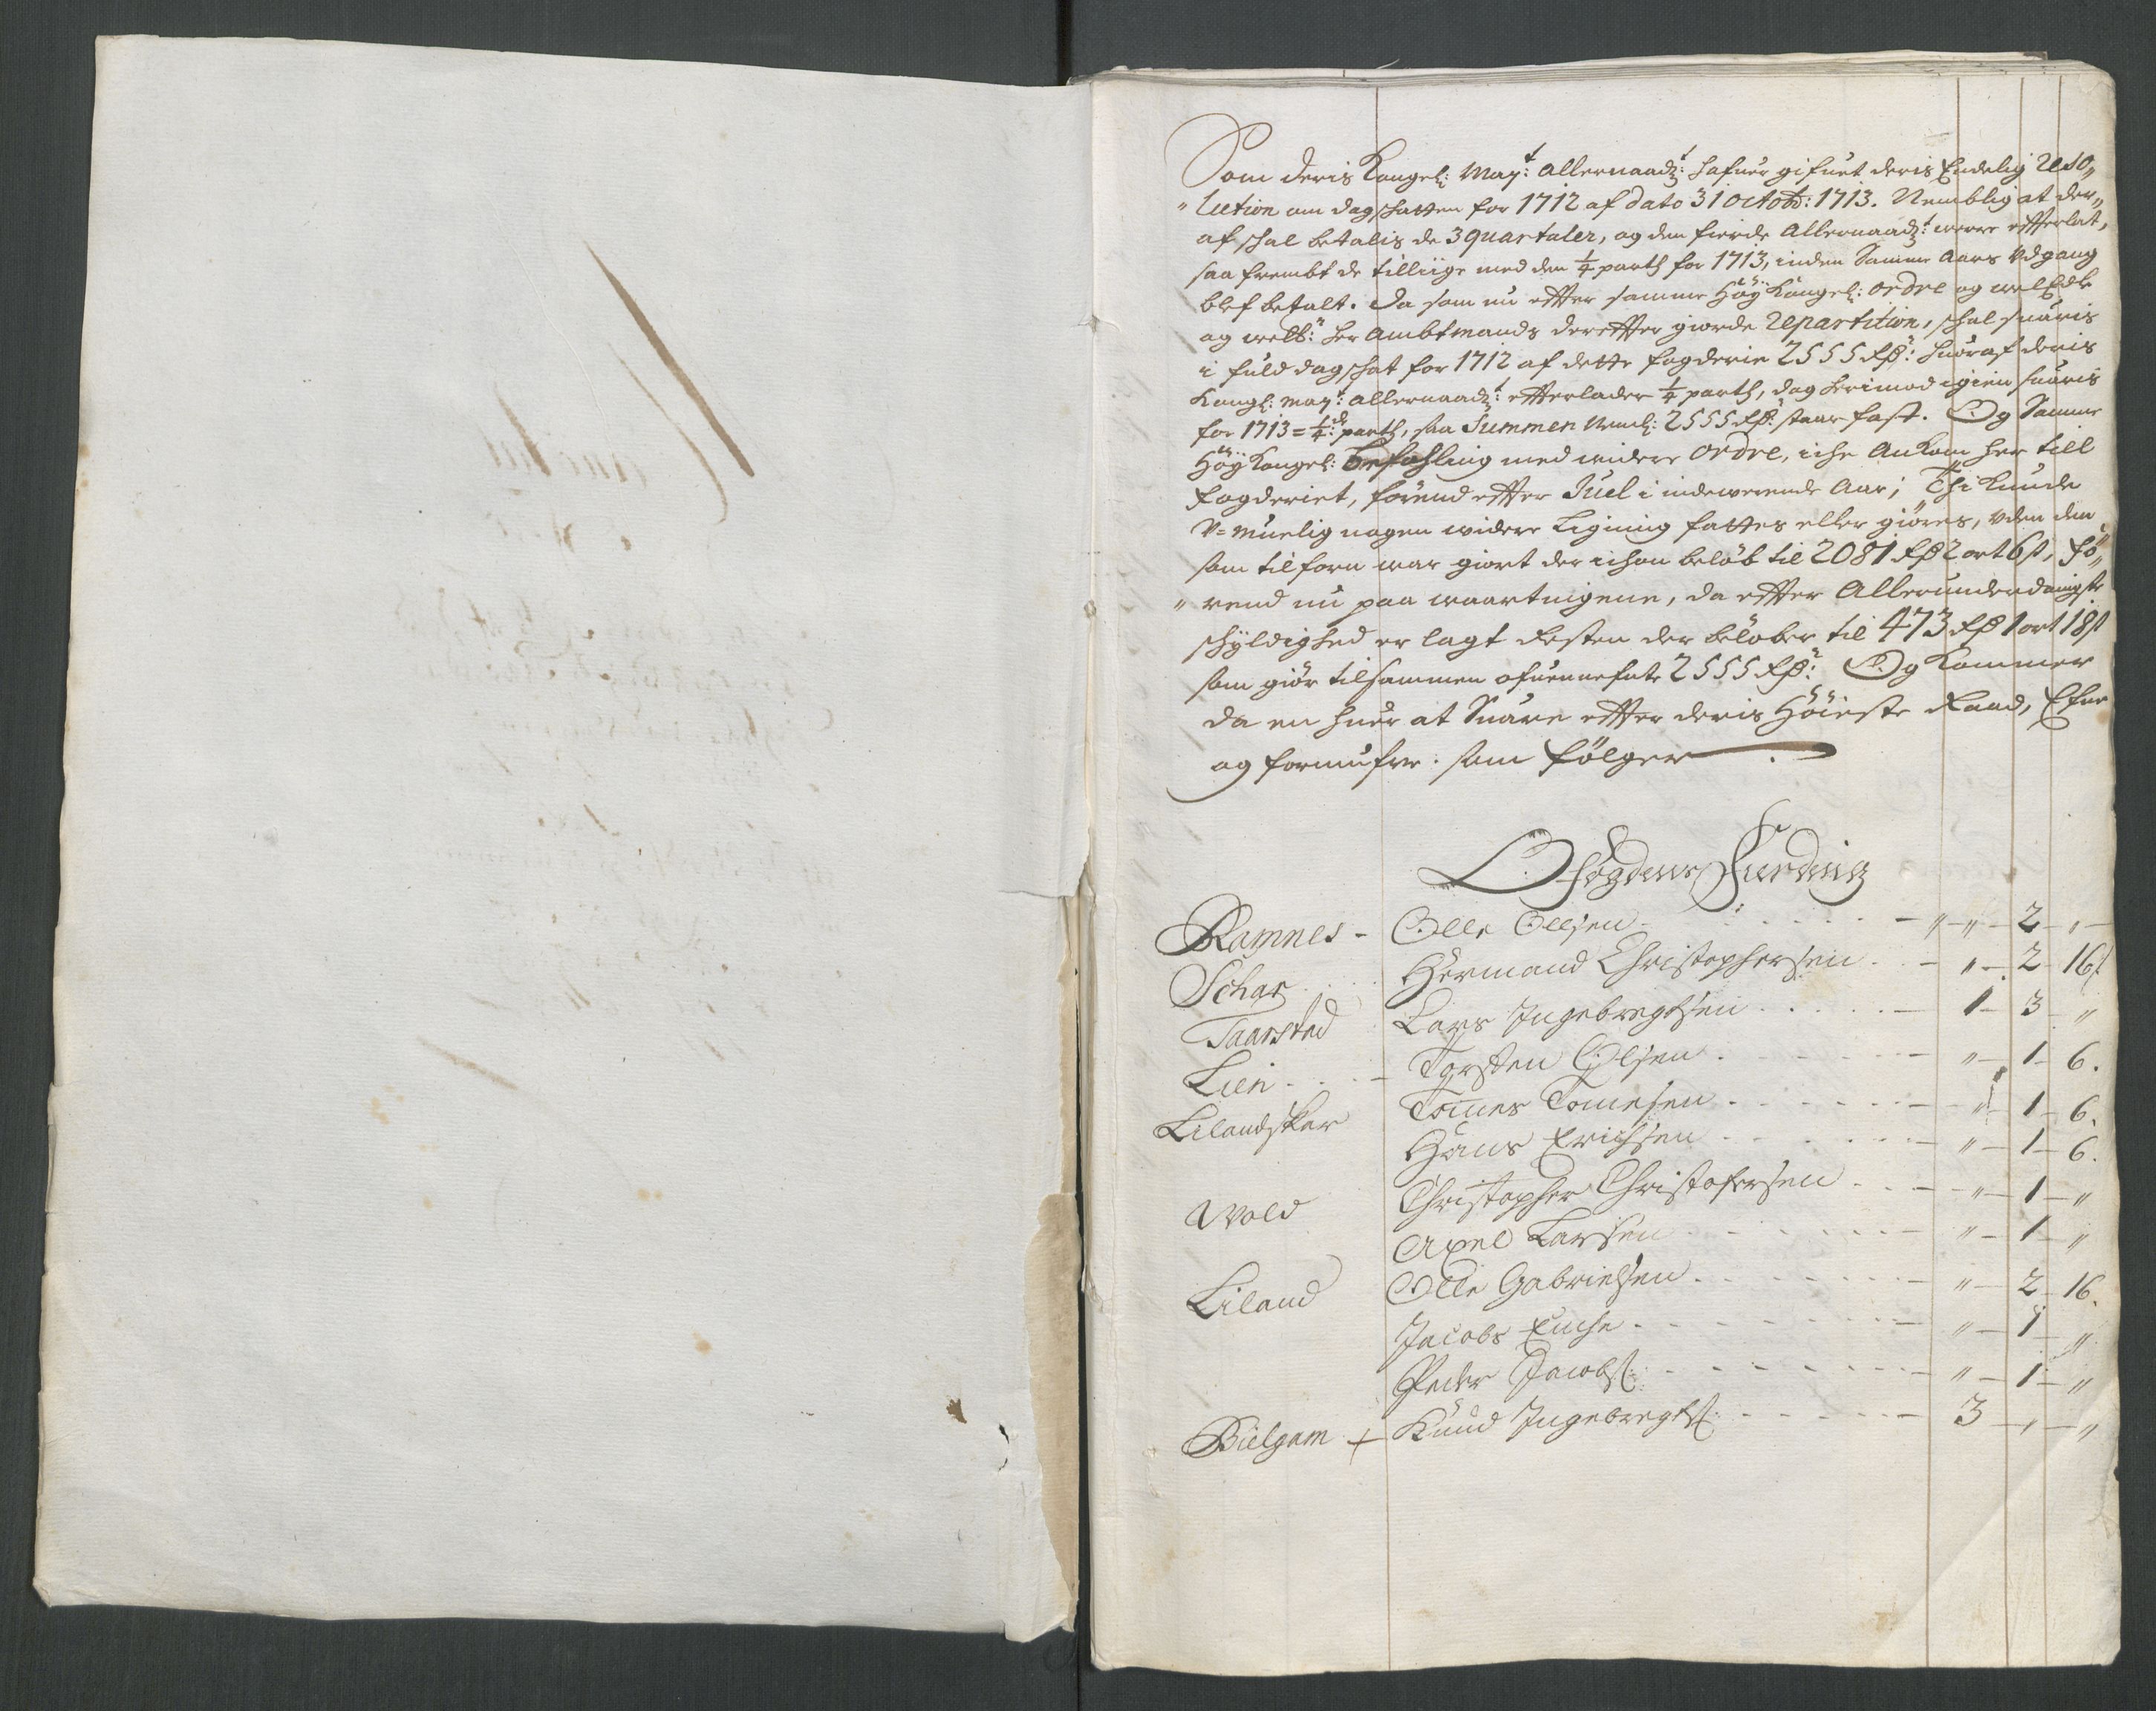 Som deris Kongel: May:t allernaadz:t hafuer gifuet deris Endelig Reso„
„lution om dagschatten for 1712 af dato 31 Octobr: 1713. Nemblig at der„
af schal betalis de 3 quartaler, og den fierde Allernaadz:t were efterlat,
saa frembt de tilliige med den ¼ parth for 1713, inden Samme Aars Udgang
blef betalt. Da som nu efter samme Höy Kongel: ordre og welEdle
og welb:n Her Ambtmands derefter giorde Repartition, schal suaris
i fuld dagschat for 1712 af dette fogderie 2555 Rdr: huoraf deris
Kongl: May:t allernaadz:t efterlader ¼ parth, dog herimod igien suaris
for 1713 = ¼:de parth, saa Summen Neml: 2555 Rdr: staar fast. Og Samme
Höy Kongel: befahling med videre ordre, iche Ankom her till
fogderiet, förend efter Juel i indewerende Aar; Thi kunde
U=muelig nogen widere Ligning fattes eller giöres, uden den
som tilforn war giort der ichon belöb til 2081 Rdr 2 ort 6 s, fö„
„rend nu paa waartingene, da efter Allerunderdanigste
schyldighed er lagt Resten der belöber til 473 Rdr 1 ort 18 s
som giör tilsammen ofuennefnte 2555 Rdr: Og kommer
da en huer at Suare efter deris Höieste Raad, Efne
og formufve. som fölger
Ofogdens Fierding
Ramnes - Olle Ollsen - „ - „ - 2 - „ -
Schar Hermand Christophersen - „ - 2 - 16 s
Taarstad Lars Ingebregtsen - 1 - 3 - „
Lien - Torsten Olsen - „ - 1 - 6.
Lilandskar Tomes Tomesen - „ - 1 - 6.
Hans Erichsen - „ - 1 - 6.
Wold Christopher Christofersen - „ - 1 - „
Axel Larsen - „ - 1 - „
Liland Olle Gabrielsen - „ - 2 - 16.
Jacobs Enche - „ - 1 - „
Peder Jacobs: - „ - 1 - „
Bielgam + Knud Ingebregts: - 3 - „ - „